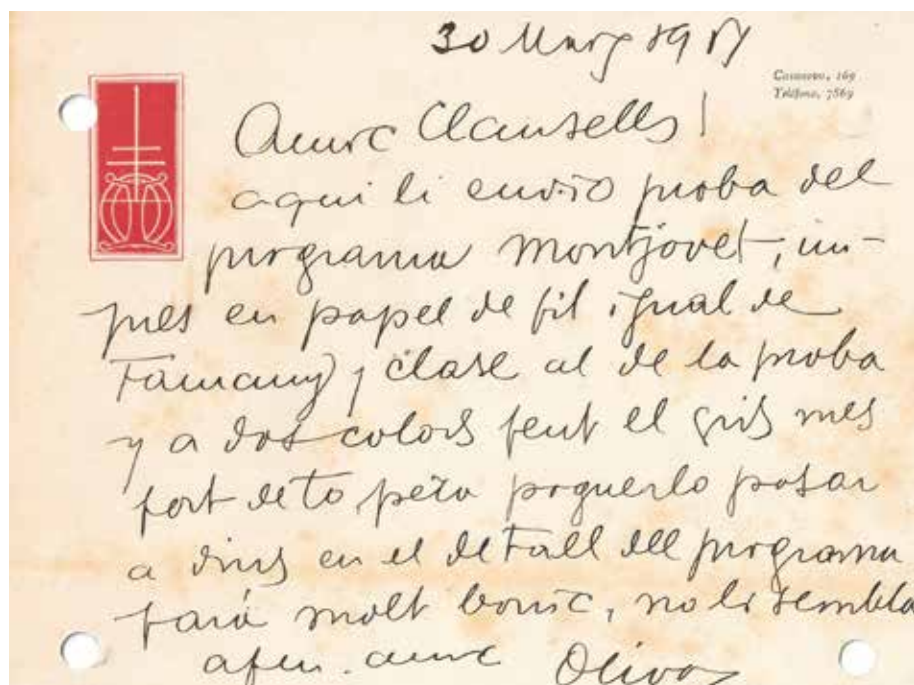 30 Març 19
Casanova, 169
Teléfono, 7869
Amic Clausells!
aqui li envio proba del
programa Montjovet, im-
prés en papel de fil igual de
Tamany y clase al de la proba
y a dos colors fent el gris mes
fort de to pera poguerlo posar
a dins en el detall del programa
fará molt bonic, no li sembla
afm. amic Oliva